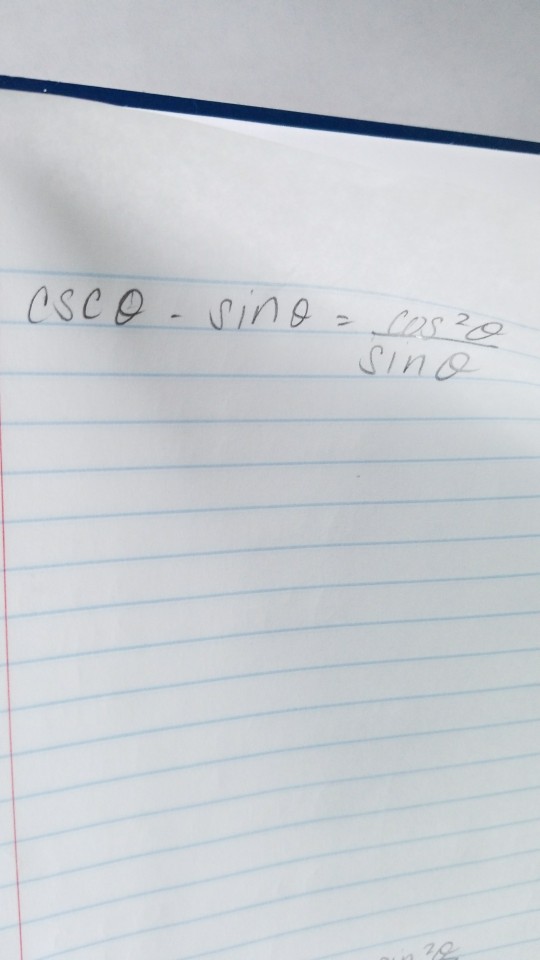 cscθ - sinθ = cos²θ / sinθ